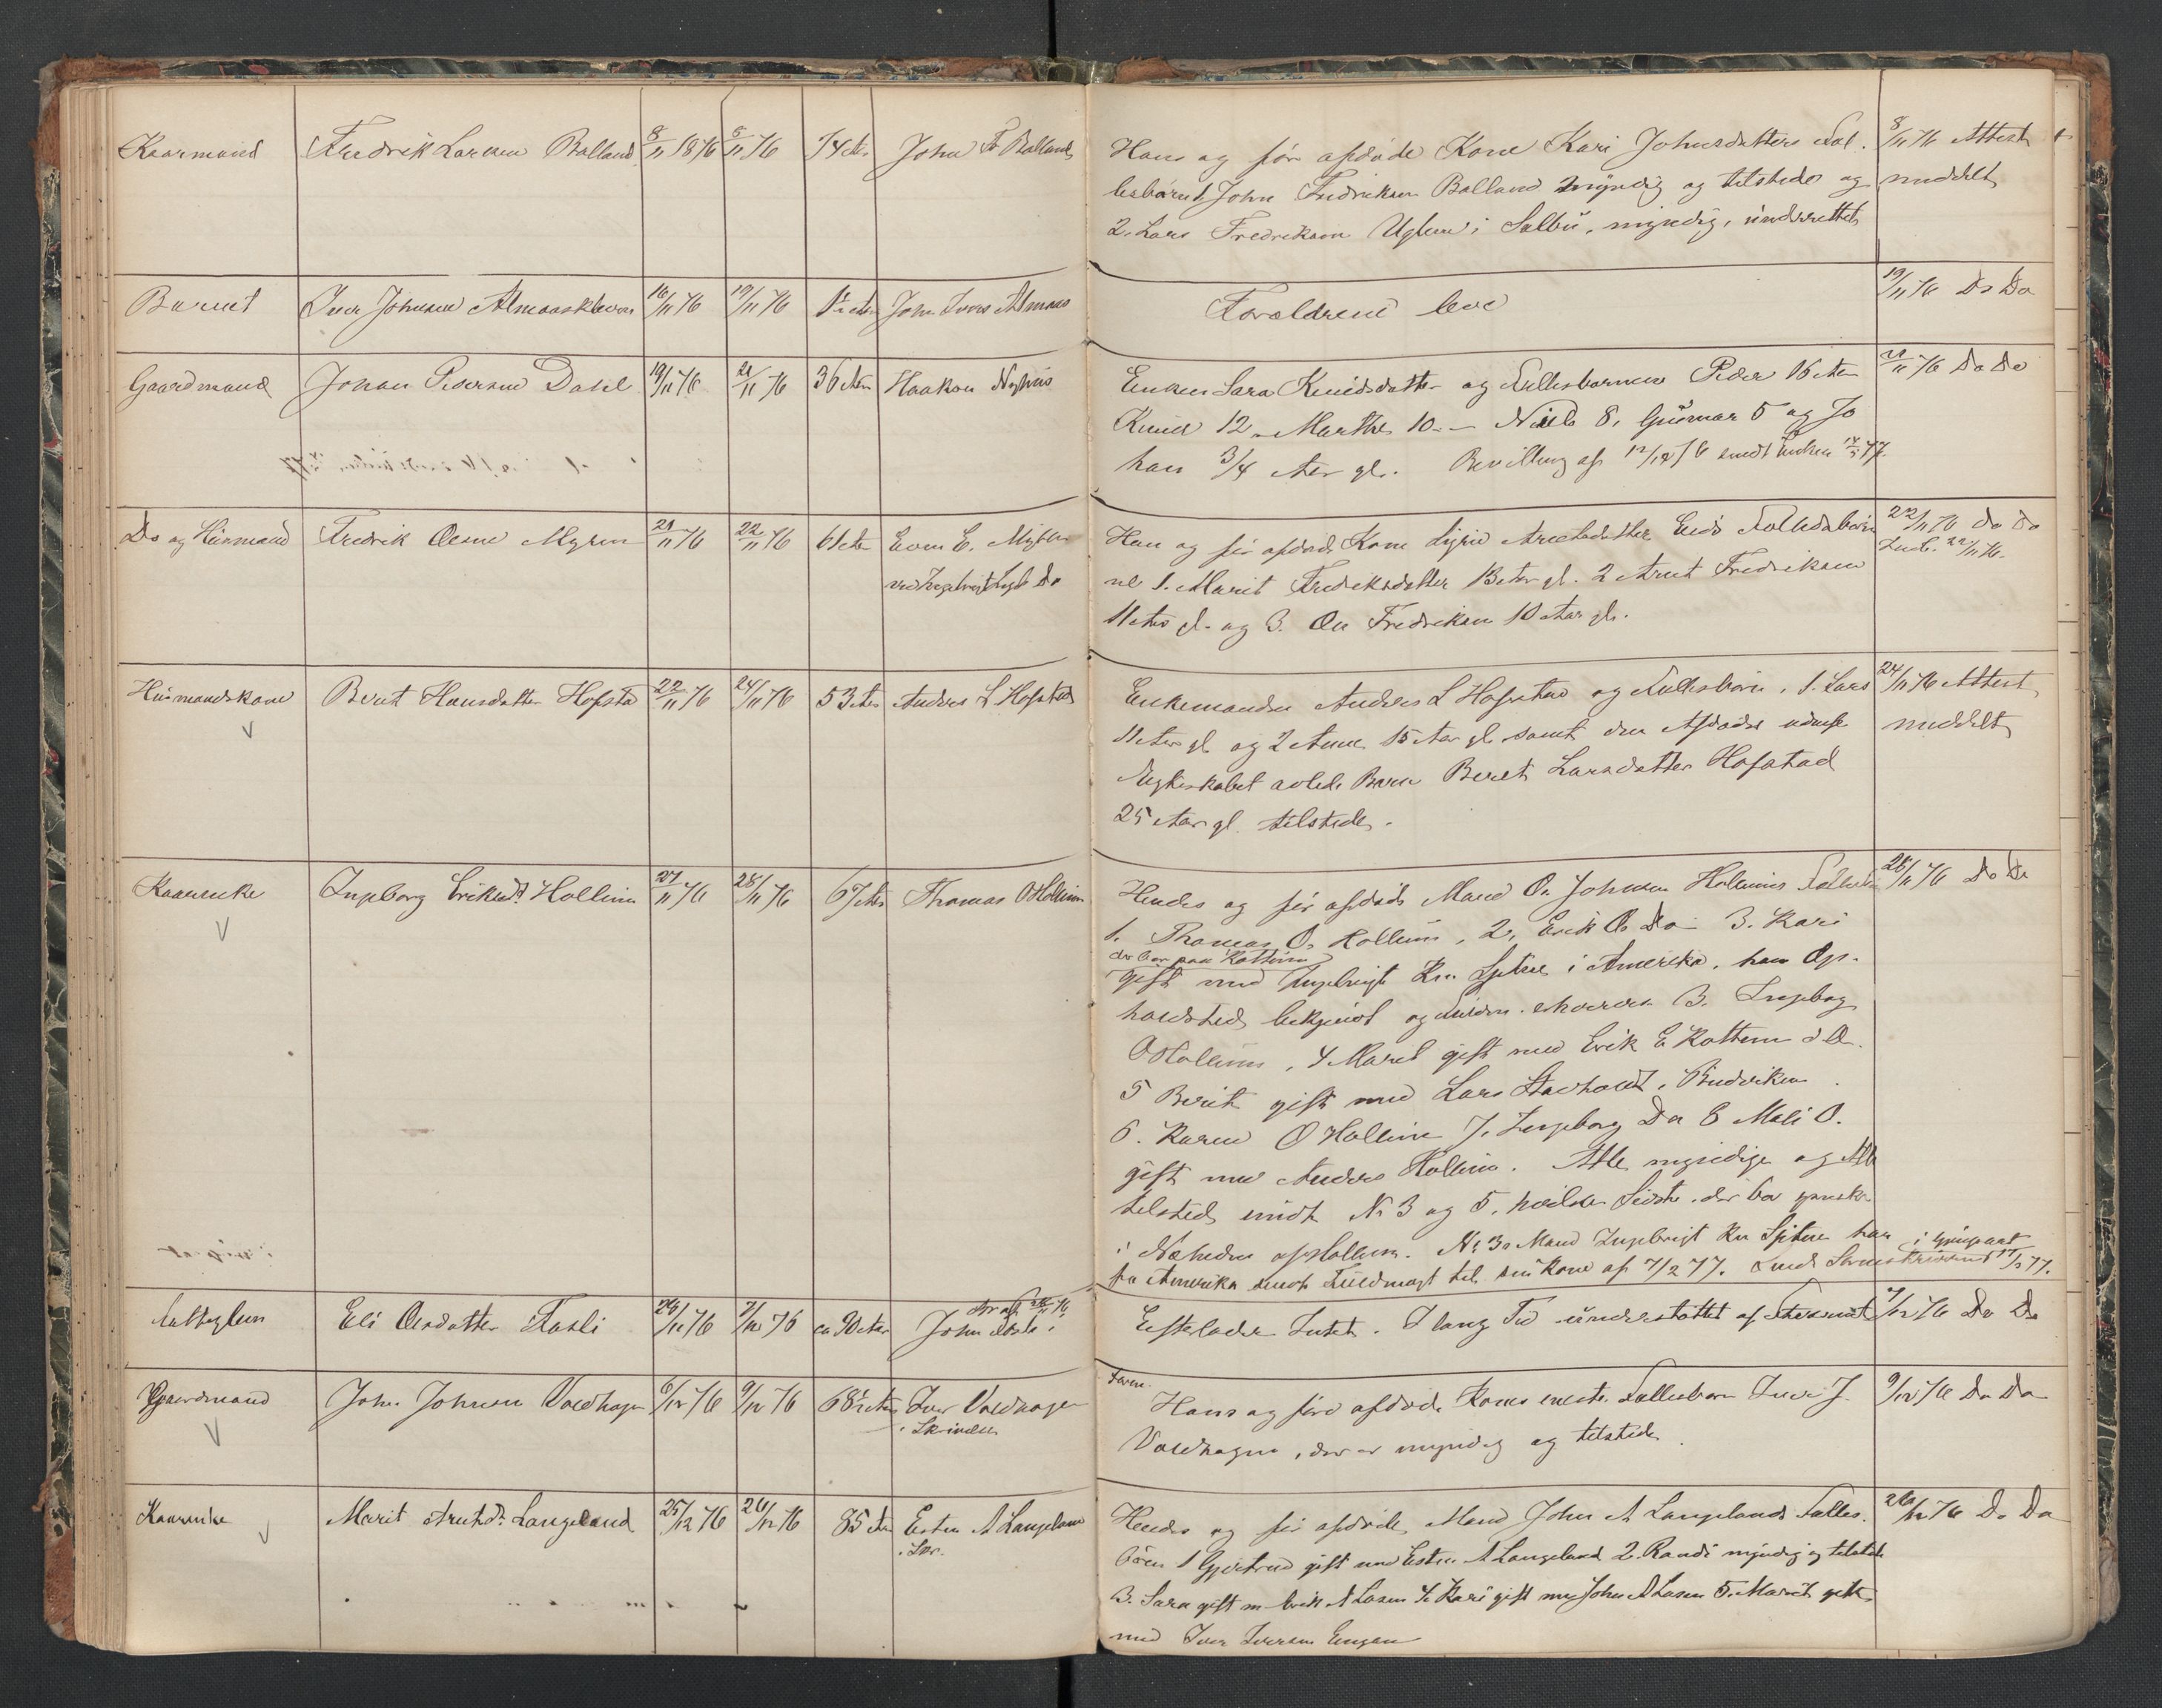 Kaarmand Fredrik Larsen Balland 8/11 1876 8/11 76 74 Aar John F Balland Hans og før afdøde Kone Kari Johnsdatters Fæl- 8/11 76 Attest
lesbørn 1 John Fredriksen Balland myndig og tilstede og meddelt
2. Lars Fredriksen Uglem i Selbu, myndig, underrettet
Barnet Iver Johnsen Almaasklеven 16/11 76 19/11 76 John Ivers Almaas Forældrene leve 19/11 76 Do Do
Gaardmand Johan Pedersen Dahl 19/11 76 21/11 76 36 Aar Haakon Nyhus Enken Sara Knudsdatter og Fællesbørnene Peder 16 Aar 21/11 76 Do Do
Knud 12 - Marthe 10 - Niels 8, Gunnar 5 og Jo
han 3/4 Aar gl. Bevilling af 12/12 76 sendt Enken
Do og Husmand Fredrik Oesen Myren 21/11 76 22/11 76 61 Aar Esten E. Myren Han og før afdøde Kone Sigrid Arntsdatter Fællesbørn 22/11 76 Do Do
nl 1. Marit Fredriksdatter 13 Aar gl. 2 Arnt Fredriksen
11 Aar gl. og 3. Ole Fredriksen 10 Aar gl.
Husmandskone Berit Hansdatter Hofstad 22/11 76 24/11 76 53 Aar Anders L Hofstad Enkemanden Anders L Hofstad og Fællesbørn, 1. Lars 24/11 76 Attest
11 Aar gl og 2 Anne 15 Aar gl samt den Afdødes udenfor meddelt
Ægteskabet avlede Barn Beret Larsdatter Hofstad
25 Aar gl. tilstede.
Kaarenke Ingeborg Eriksdt. Hollum 27/11 76 28/11 76 67 Aar Thomas O Hollum Hendes og før afdøde Mand O. Johnsen Hollums Fællesbørn 28/11 76 Do Do
1. Thomas O. Hollum, 2, Erik O. Do - 3. Kari
der bor paa Kottum
gift med Ingebrigt Kr. Sjetne i Amerika, hans Op-
holdsted bekjendt 3. Ingebor
O Hollum, 4 Marit gift med Erik E Kottem
5 Berit gift med Lars Stavholdt, Budviken
6. Karen O Hollum 7. Ingeborg Do 8 Mali O.
gift med Anders Hollum. Alle myndige og Alle
tilstede undt No 3 og 5, hvilken Sidste der bor ganske
i Nærheden af Hollum. No 3s Mand Ingebrigt Kr Sjetne har i
fra Amerika sendt Fuldmagt til sin Kone af 7/2 77.
Eli Olsdatter Fossli 26/11 76 7/12 76 ca 90 Aar John Fossli Efterlader Intet. I lang Tid understøttet af Fattigv 7/12 76 Do Do
Gaardmand John Johnsen Voldhagen 6/12 76 9/12 76 68 1/2 Aar Iver Voldhagen Hans og før afdøde Kones eneste Fællesbarn Iver J. 9/12 76 Do Do
Voldhagen, der er myndig og tilstede
Kaarenke Marit Arntsdt. Langeland 25/12 76 26/12 76 85 Aar Esten A Langeland Hendes og før afdøde Mand John A Langelands Fælles- 26/12 76 Do Do
børn 1 Gjertrud gift med Esten A Langeland 2. Randi myndig og tilstede
3. Sara gift m Erik A Lasen 4 Kari gift med John A Lasen 5. Marit gift
med Iver Iversen Engen